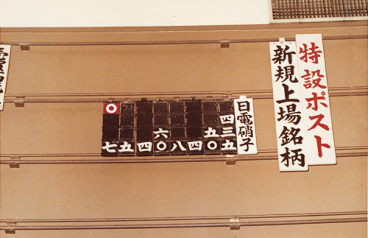 特設ポスト
新規上場銘柄
日電硝子
四三五
五〇
四
八
六〇
四
五
七